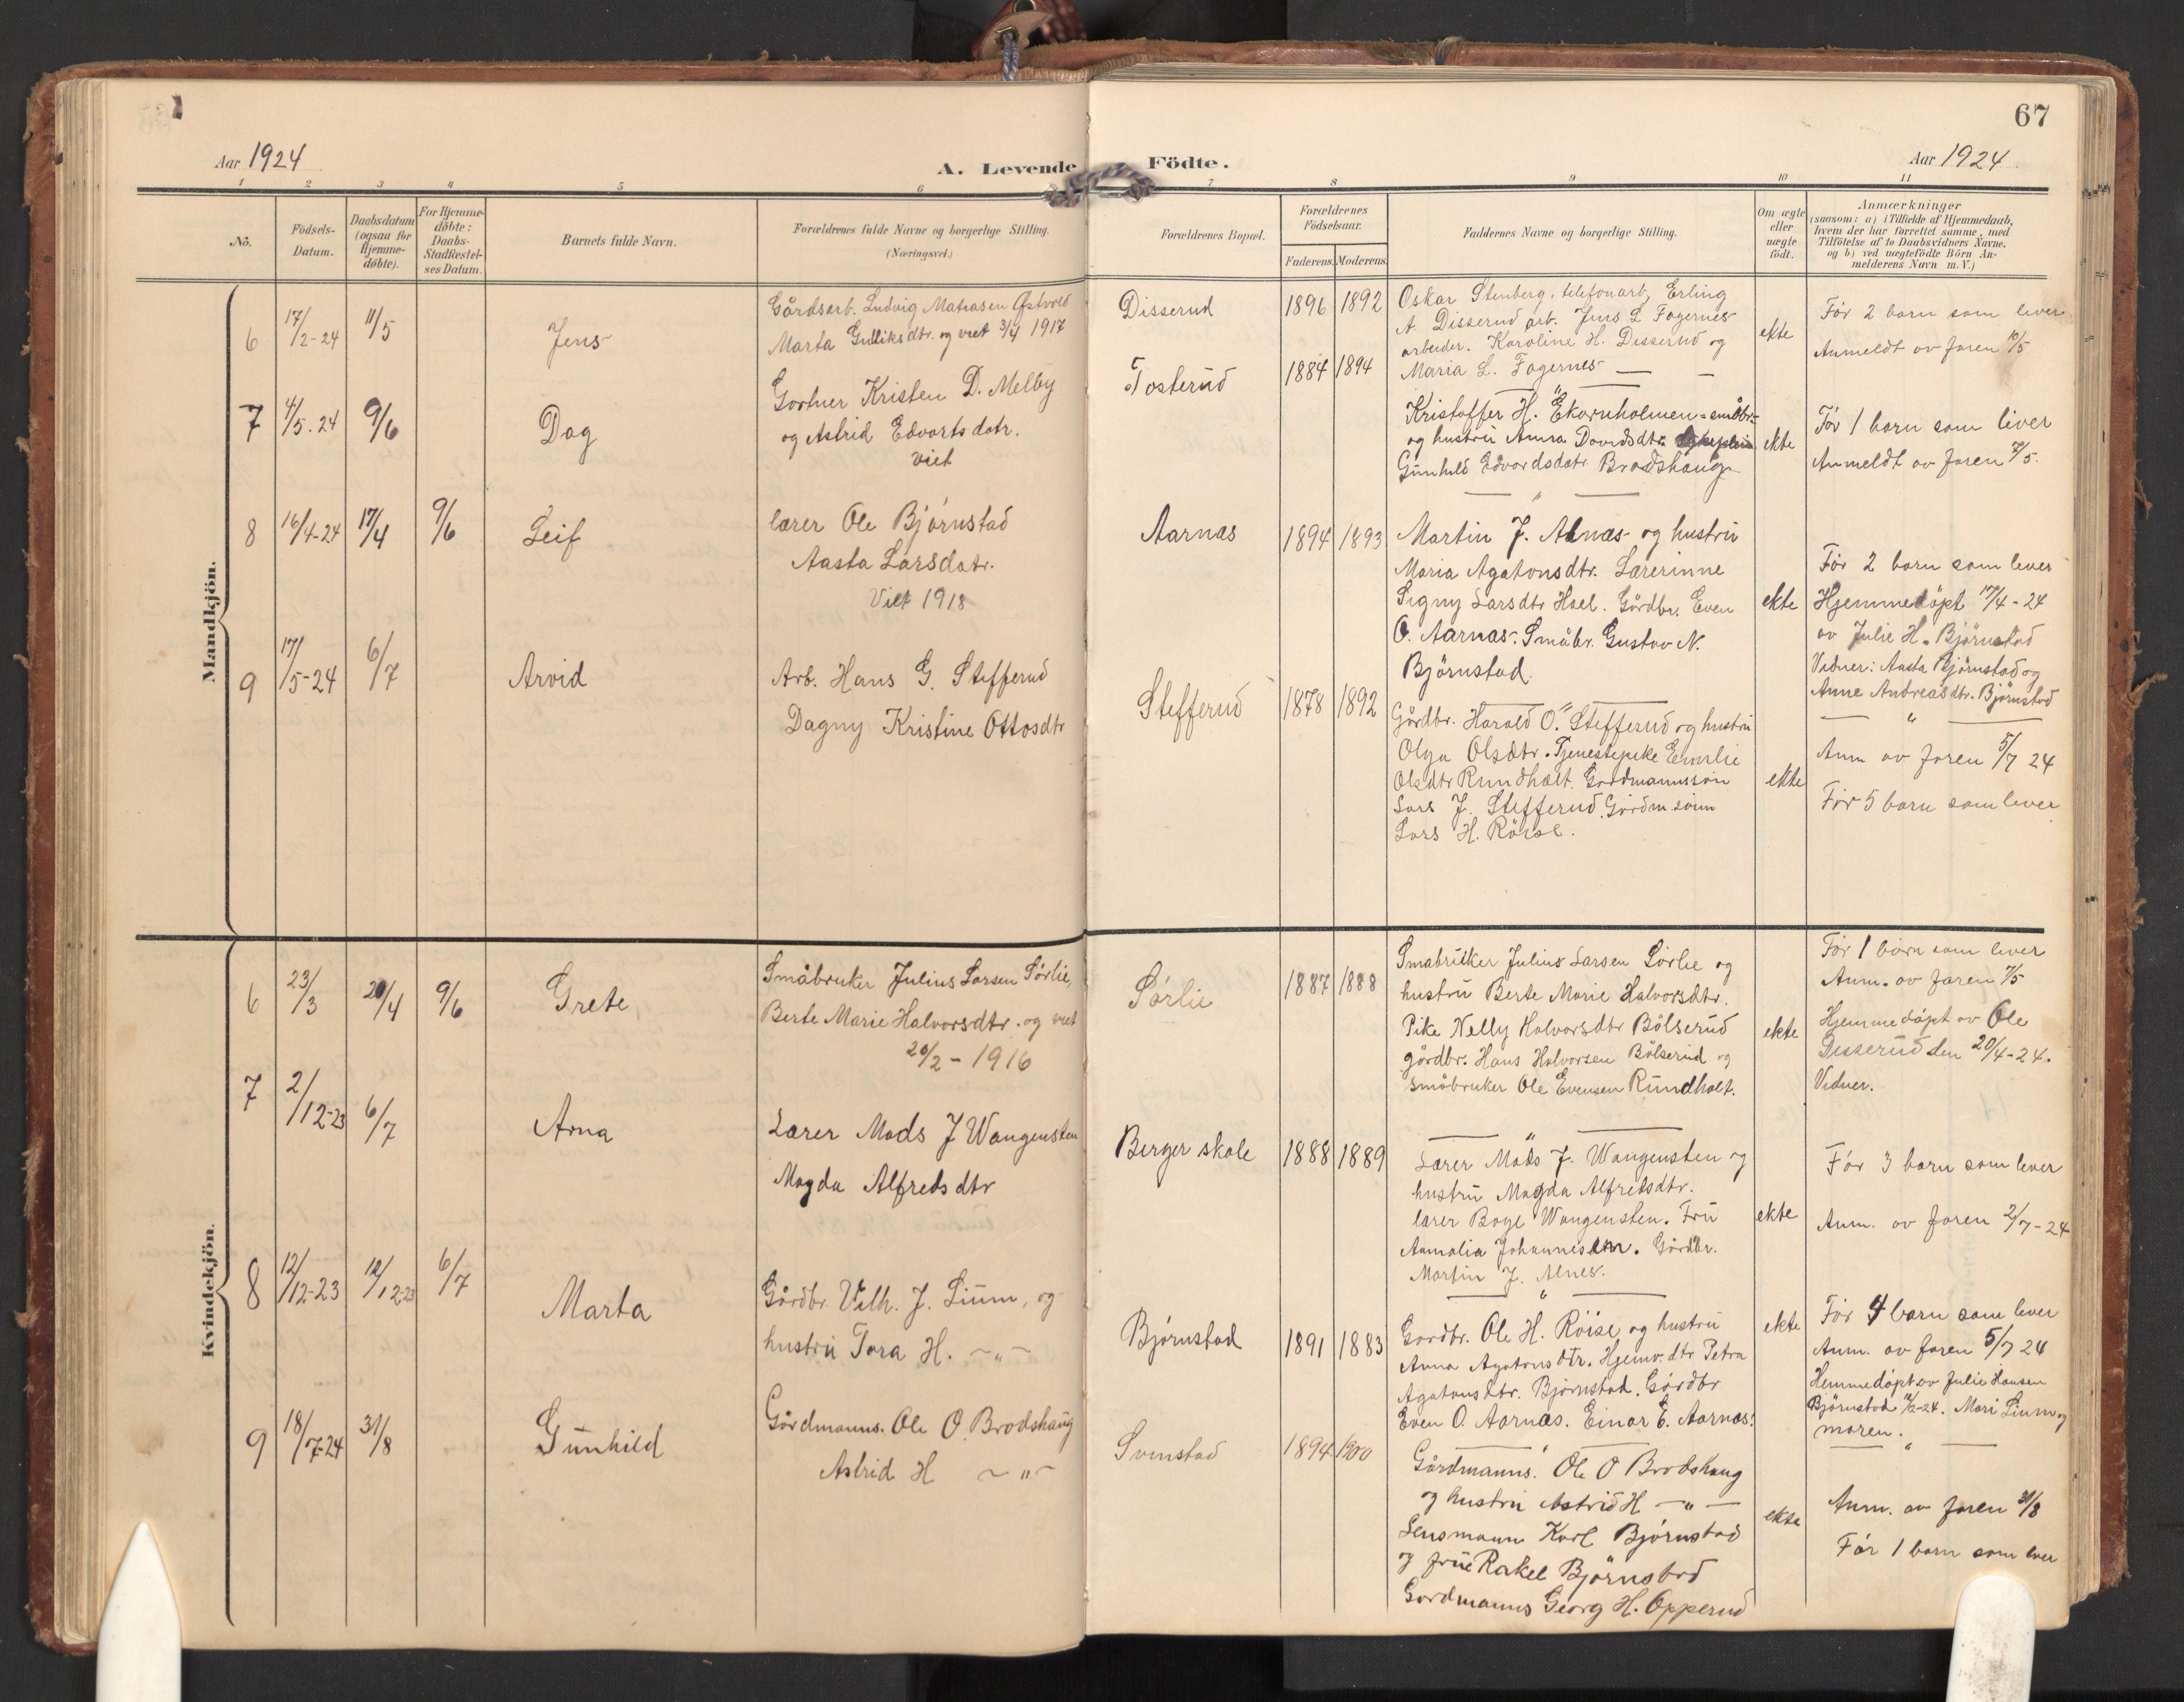 67
Aar 1924
A. Levende
Födte.
Aar 1924
1 2 3 4 5 6 7 8 9 10 11
No.
Födsels-
Datum.
Daabsdatum
(ogsaa for
Hjemme-
döbte).
For Hjemme-
döbte:
Daabs-
Stadfæstel-
ses Datum.
Barnets fulde Navn.
Forældrenes fulde Navne og borgerlige Stilling.
(Næringsvei.)
Forældrenes Bopæl.
Forældrenes
Födselsaar.
Faderens. Moderens.
Faddernes Navne og borgerlige Stilling.
Om ægte
eller
uægte
födt.
Anmærkninger
(saasom: a) i Tilfælde af Hjemmedaab,
hvem der har forrettet samme, med
Tilföielse af to Daabsvidners Navne,
og b) ved uægtefödte Börn An-
melderens Navn m. V.)
Mandkjön.
6 17/2-24 11/5
Jens
Gårdsarb. Ludvig Matiasen Østvold
Marta Gulliksdtr. og viet 3/4 1917
Disserud
1896 1892
Oskar Stenberg, telefonarb, Erling
A. Disserud arb. Jens L Fagernes
arbeider. Karoline H. Disserud og
Maria L. Fagernes
ekte
Før 2 barn som lever
Anmeldt av faren 10/5
7 4/5-24 9/6
Dag
Gartner Kristen D. Melby
og Astrid Edvartsdatr.
viet
Tosterud
1884 1894
Kristoffer H. Ekornholmen - småbr.-
og hustru Anna Davidsdtr.
Gunhild Edvardsdatr Brodshaug
ekte
Før 1 barn som lever
Anmeldt av faren 7/5.
8 16/4-24 17/4 9/6
Leif
lærer Ole Bjørnstad
Aasta Larsdatr.
Viet 1918
Aarnas
1894 1893
Martin J. Alnas og hustru
Maria Agatonsdtr. Lærerinne
Signy Larsdtr Hoel. Gårdbr. Even
O. Aarnas. Småbr. Gustav N.
Björnstad.
ekte
Før 2 barn som lever
Hjemmedøpt 17/4-24
av Julie H. Bjørnstad
Vidner: Aasta Bjørnstad og
Anne Andreasdtr. Bjørnstad
9 17/5-24 6/7
Arvid
Arb. Hans G. Stefferud
Dagny Kristine Ottosdtr
Stefferud
1878 1892
Gårdbr. Harald O. Stefferud og hustru
Olga Olsdtr. Tjenestepike Emilie
Olsdtr Rundhalt. Gardmannssøn
Lars J. Stefferud. Gårdm.sönn
Lars H. Röise.
ekte
Anm av faren 5/7 24
Før 5 barn som lever
Kvindekjön.
6 23/3 20/4 9/6
Grete
Småbruker Julius Larsen Sørlie,
Berte Marie Halvorsdtr. og viet
20/2 - 1916
Sørlie
1887 1888
Småbruker Julius Larsen Sörlie og
hustru Berte Marie Halvorsdtr.
Pike Nelly Halvorsdtr Bölserud
gårdbr. Hans Halvorsen Bölserud og
småbruker Ole Evensen Rundhalt.
ekte
Før 1 barn som lever
Anm. av faren 7/5
Hjemmedøpt av Ole
Disserud den 20/4-24.
Vidner.
7 2/12-23 6/7
Arna
Lærer Mads J Wangensten
Magda Alfredsdtr
Berger skole
1888 1889
Lærer Mads J. Wangensten og
hustru Magda Alfredsdtr.
lærer Boye Wangensten. Fru
Aamalia Johannesen. Gårdbr.
Martin J. Alnes.
ekte
Før 3 barn som lever
Anm. av faren 2/7-24
8 12/12-23 12/12-23 6/7
Marta
Gårdbr. Vilh. J. Lium, og
hustru Tora H. -"-
Bjørnstad
1891 1883
Gardbr. Ole H. Röise og hustru
Anna Agatonsdtr. Hjemv.dtr Petra
Agatonsdtr. Bjørnstad. Gårdbr
Even O. Aarnas. Einar E. Aarnas.
ekte
Før 4 barn som lever
Anm. av faren 5/7 24
Hemmedøpt av Julie Hansen
Bjørnstad 12/2-24. Mari Lium og
moren.
9 18/7-24 31/8
Gunhild
Gårdmanns. Ole O. Brodshaug
Astrid H -"-
Svinstad
1894 1900
Gårdmanns. Ole O Brodshaug
og hustru Astrid H -"-
Lensmann Karl Bjørnstad
og frue Rakel Bjørnstad
Gardmanns Georg H. Opperud
ekte
Anm. av faren 31/8
Før 1 barn som lever